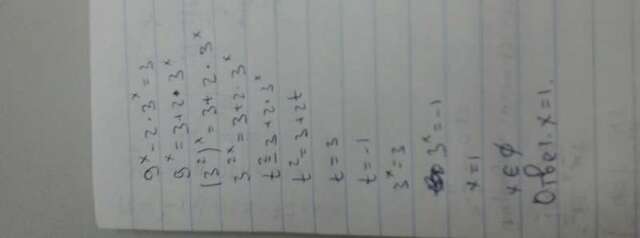 9^x - 2 · 3^x = 3
9^x = 3 + 2 · 3^x
(3^2)^x = 3 + 2 · 3^x
3^2x = 3 + 2 · 3^x
t^2 = 3 + 2 · 3^x
t^2 = 3 + 2t
t = 3
t = -1
3^x = 3
3^x = -1
x = 1
x ∈ ∅
Ответ: x = 1.